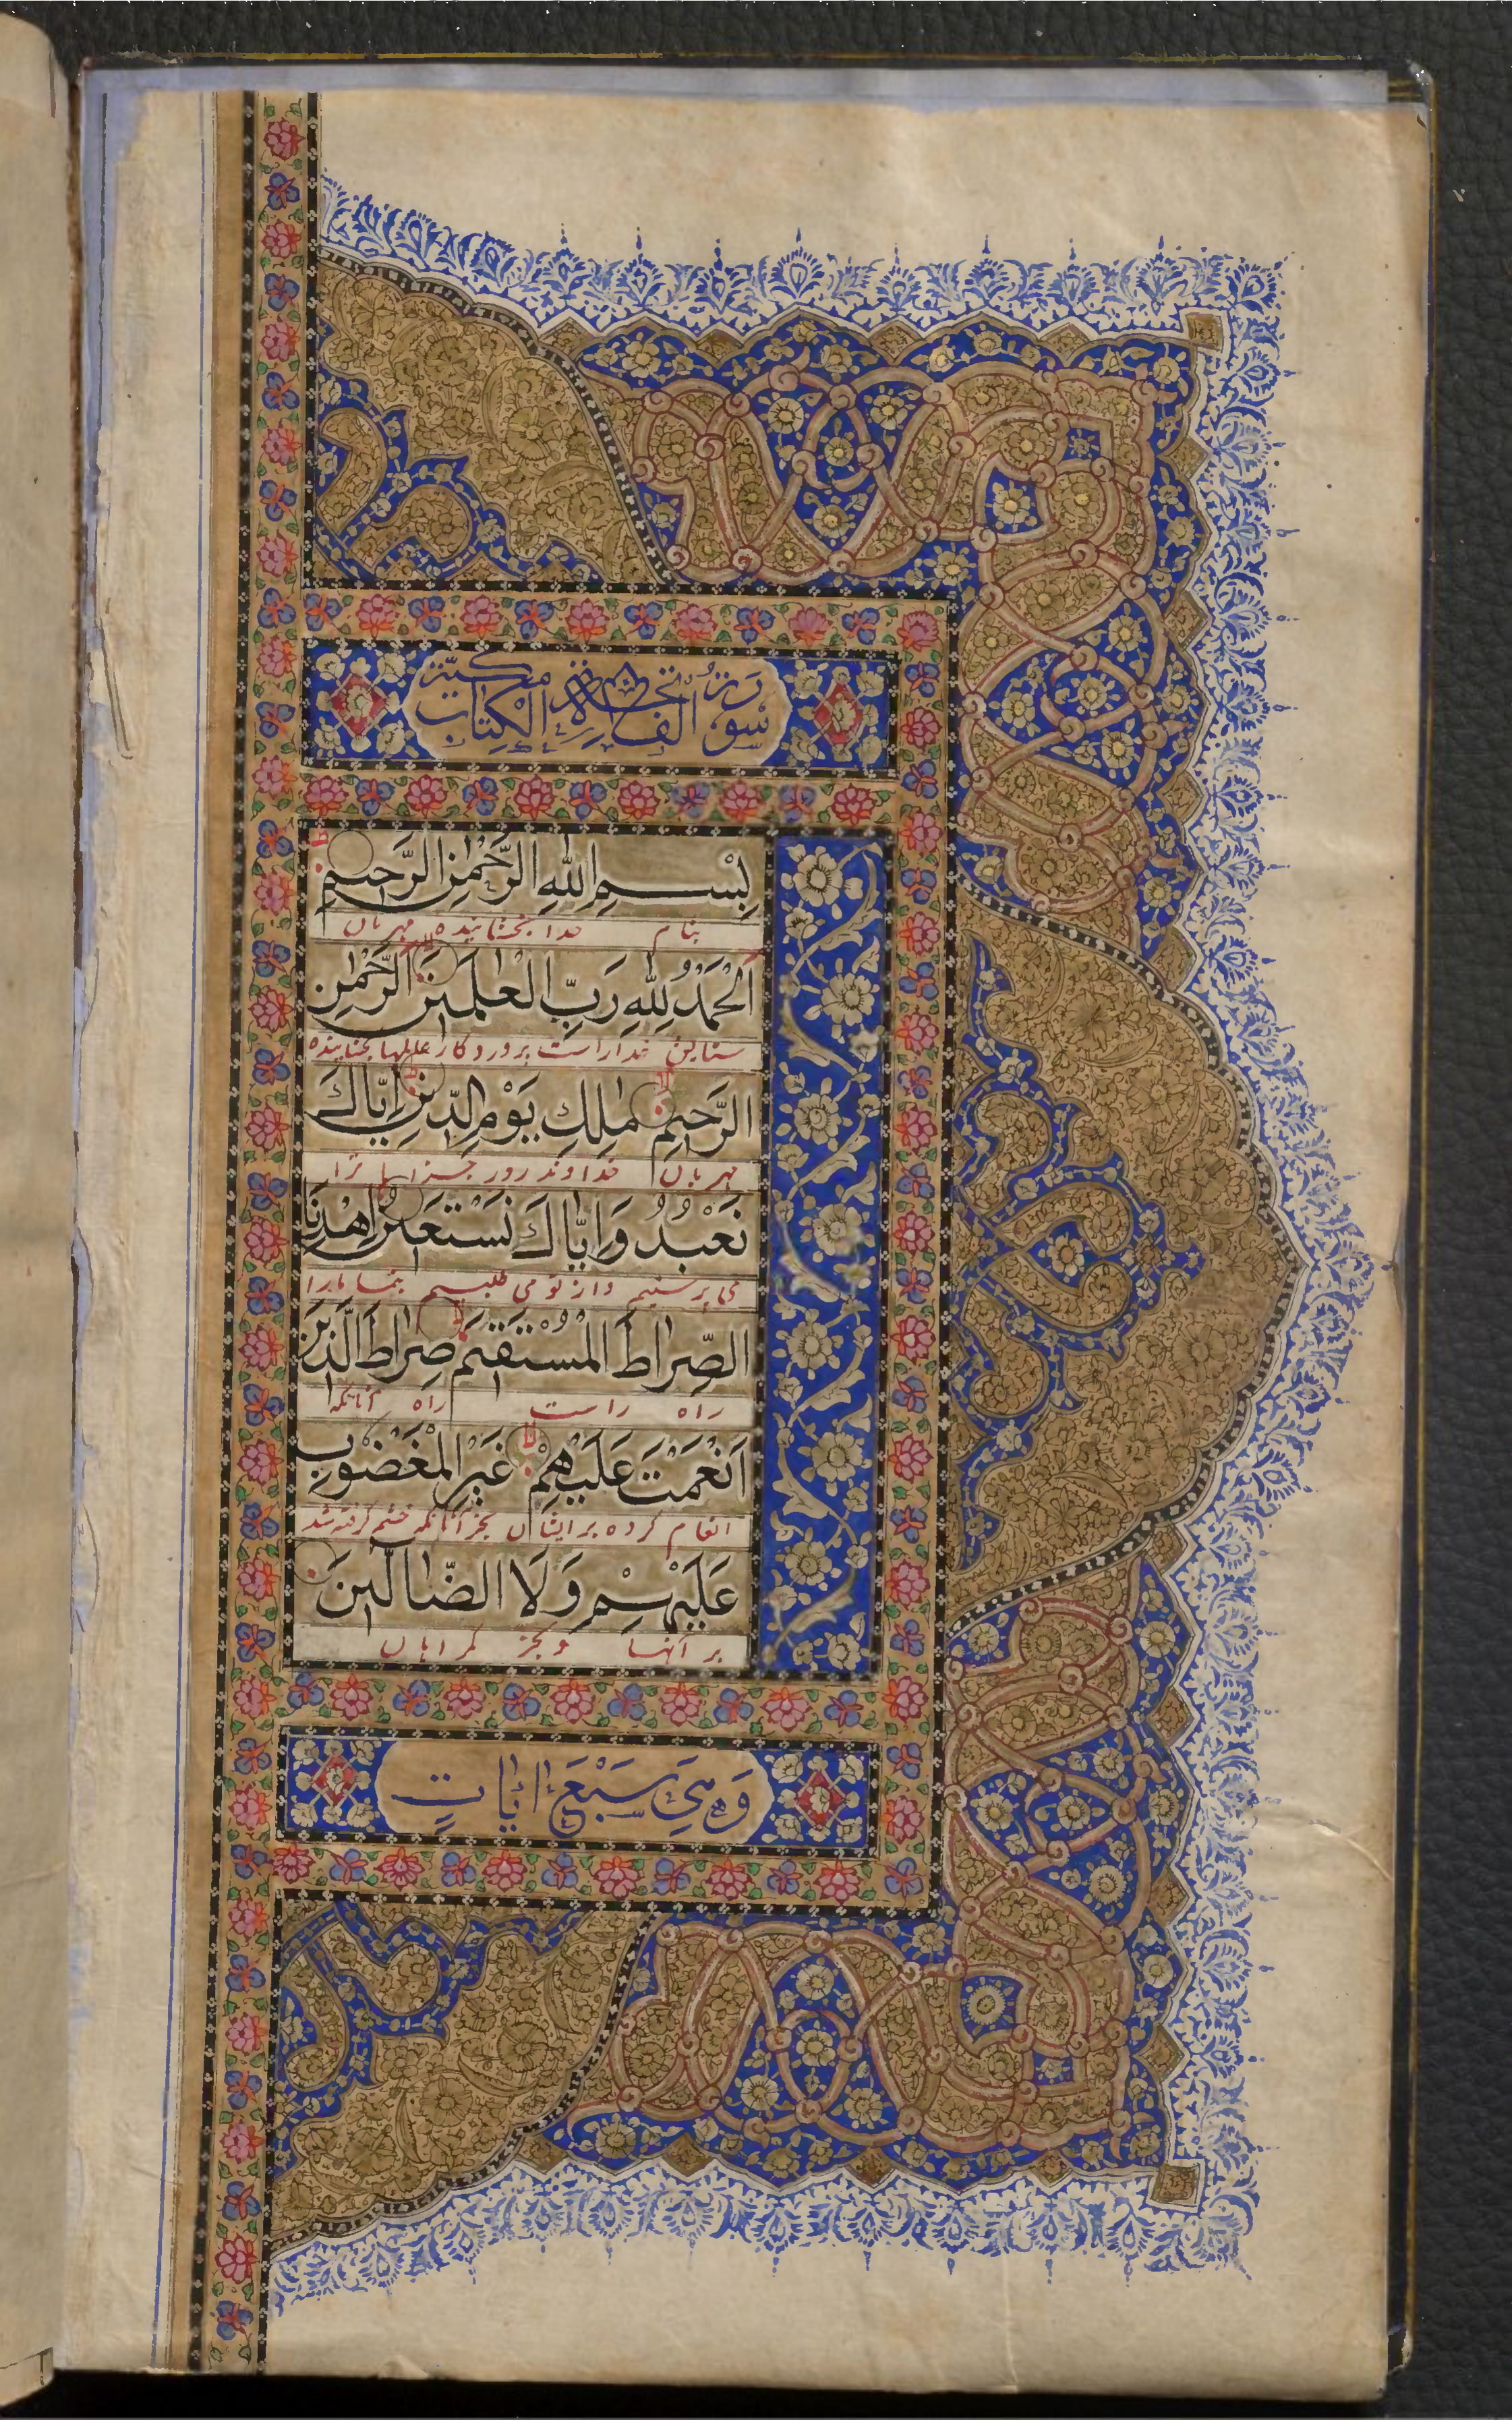 سورة الفاتحة الكتاب مكية
بِسْمِ اللهِ الرَّحْمٰنِ الرَّحِيمِ
بنام خدا بخشاینده مهربان
اَلْحَمْدُ لِلّٰهِ رَبِّ الْعٰلَمِينَ الرَّحْمٰنِ
ستایش خدا راست پروردگار عالمها بخشاینده
الرَّحِيمِ مٰلِكِ يَوْمِ الدِّينِ اِيَّاكَ
مهربان خداوند روز جزا ترا
نَعْبُدُ وَاِيَّاكَ نَسْتَعِينُ اِهْدِنَا
می پرستیم و از تو می طلبیم بنما ما را
الصِّرَاطَ الْمُسْتَقِيمَ صِرَاطَ الَّذِينَ
راه راست راه آنانکه
اَنْعَمْتَ عَلَيْهِمْ غَيْرِ الْمَغْضُوبِ
انعام کرده بر ایشان بجز آنانکه خشم گرفته شد
عَلَيْهِمْ وَلَا الضَّالِّينَ
بر آنها و بجز گمراهان
وَهِيَ سَبْعَ اٰيَاتٍ